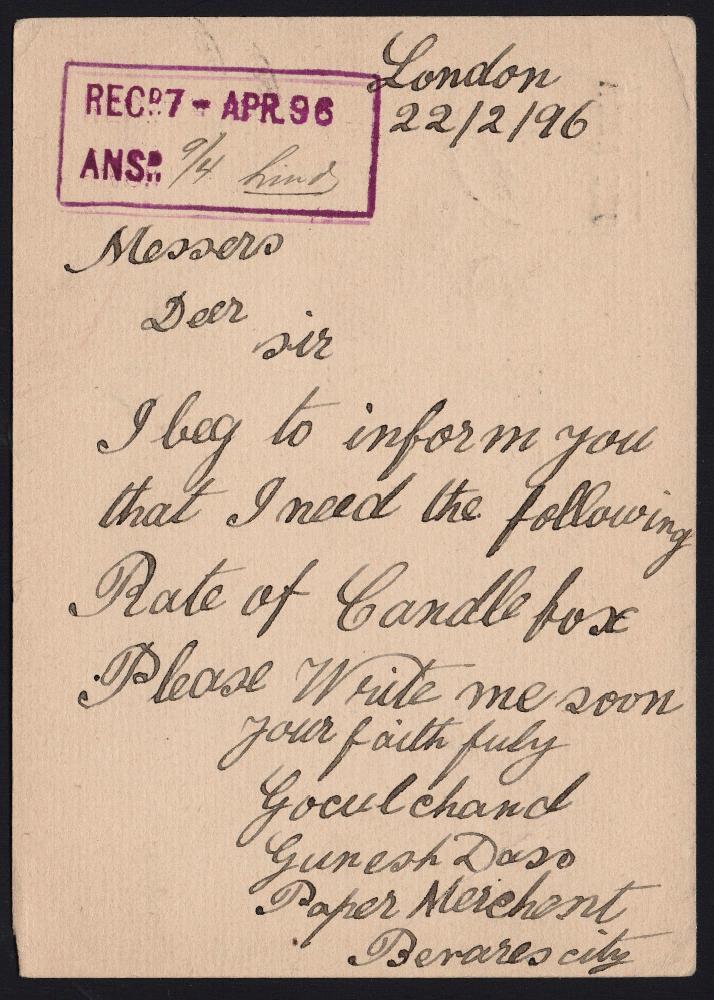 London
22/2/96
RECD 7 - APR. 96
ANSD 9/4
Messers
Deer
sir
I beg to inform you
that I need the following
Rate of Candle fox
Please Write me soon
your faith fuly
Goculchand
Gunesh Dass
Paper Merchent
Benares city